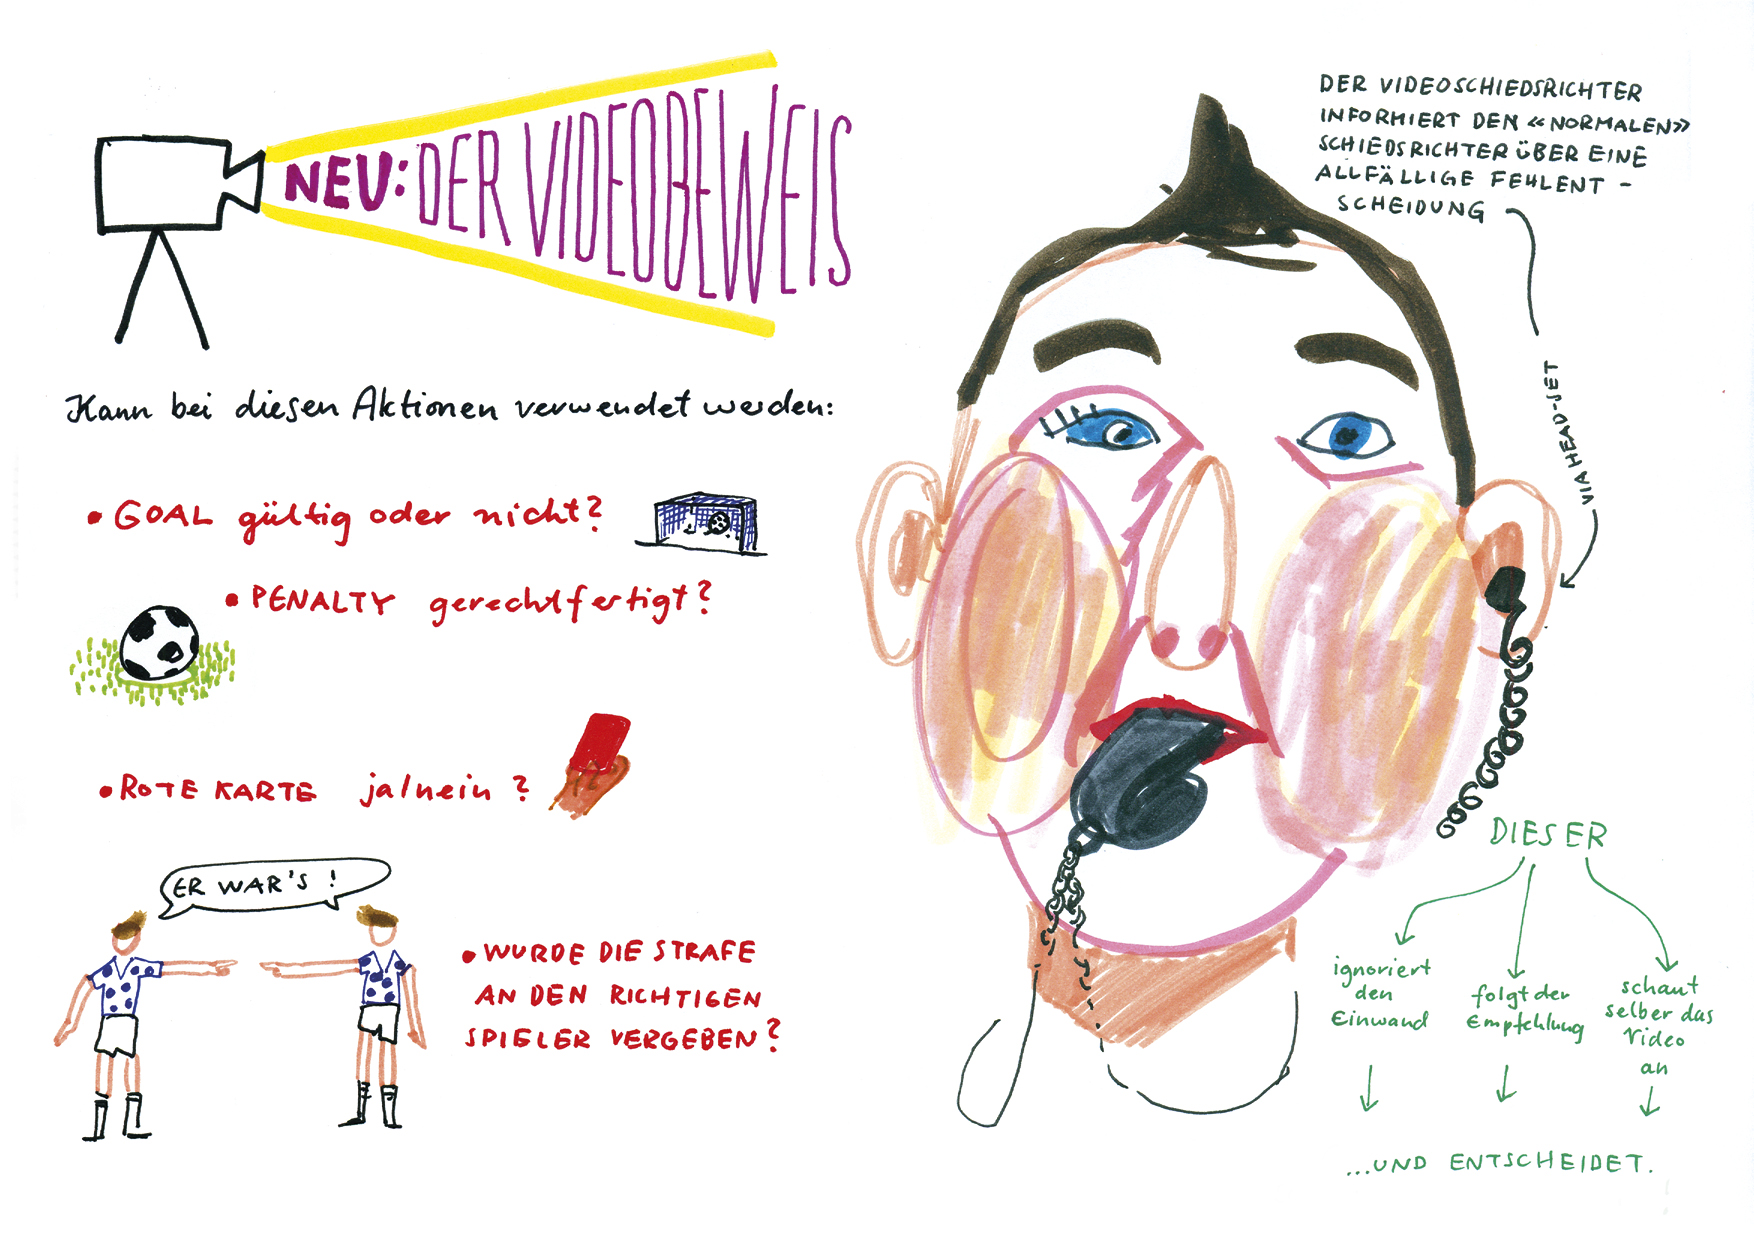 NEU: DER VIDEOBEWEIS
Kann bei diesen Aktionen verwendet werden:
• GOAL gültig oder nicht?
• PENALTY gerechtfertigt?
• ROTE KARTE ja/nein?
ER WAR'S !
• WURDE DIE STRAFE
AN DEN RICHTIGEN
SPIELER VERGEBEN?
DER VIDEOSCHIEDSRICHTER
INFORMIERT DEN «NORMALEN»
SCHIEDSRICHTER ÜBER EINE
ALLFÄLLIGE FEHLENT-
SCHEIDUNG
VIA HEAD-SET
DIESER
ignoriert
den
Einwand
folgt der
Empfehlung
schaut
selber das
Video
an
...UND ENTSCHEIDET.